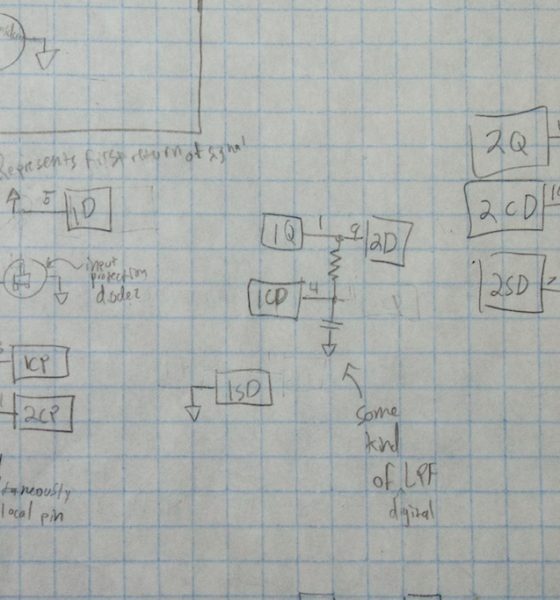 Represents first return of signal
2Q
5
1D
2CD
1Q
1
9
2D
input
protection
diodes
1CD
4
2SD
1CP
1SD
2CP
some
kind
of LPF
digital
taneously
local pin